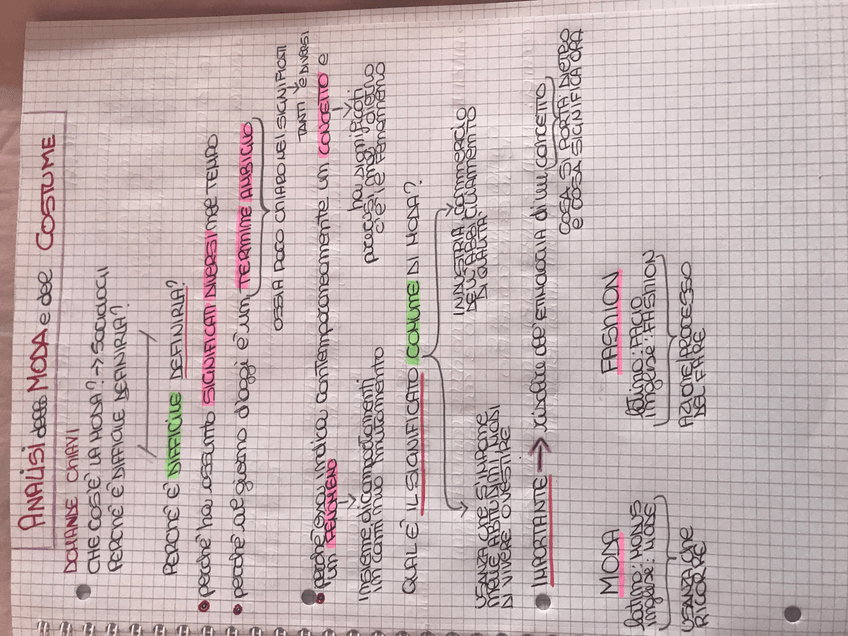 ANALISI della MODA e del COSTUME
DOMANDE CHIAVI
CHE COS'È LA MODA? → Sociologi
PERCHÉ È DIFFICILE DEFINIRLA?
PERCHÉ È DIFFICILE DEFINIRLA?
perché ha assunto SIGNIFICATI DIVERSI nel TEMPO
perché al giorno d'oggi è un TERMINE AMBIGUO
OSSIA POCO CHIARO NEI SIGNIFICATI
TANTI e DIVERSI
perché essa indica contemporaneamente un CONCETTO e
un FENOMENO
insieme di comportamenti
in continuo mutamento
ha significati
precisi ma dietro
c'è il fenomeno
QUAL È IL SIGNIFICATO COMUNE DI MODA?
USANZA CHE SI IMPONE
NELLE ABITUDINI, NEI MODI
DI VIVERE O VESTIRE
INDUSTRIA, commercio
DELL'ABBIGLIAMENTO
DI QUALITÀ
IMPORTANTE → risalire all'ETIMOLOGIA di un CONCETTO
COSA SI PORTA DIETRO
e COSA SIGNIFICA ORA
MODA
latino: MODUS
inglese: MODE
USANZA che
RICORRE
FASHION
latino: FACIO
inglese: FASHION
AZIONE/PROCESSO
DEL FARE